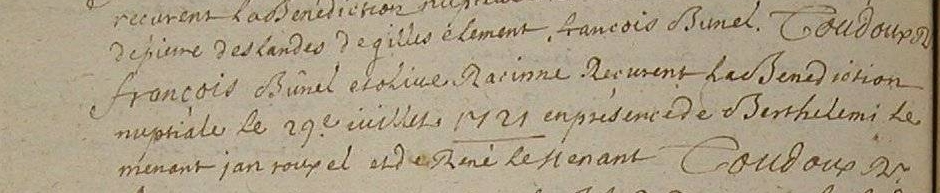 recurent la Benediction nuptiale
de pierre deslandes de gilles element, francois Bunel. Coudoux R
françois Bûnel et olive Racinne Recurent la Benediction
nuptiale le 29e iuillet 1721 en présence de Berthelemi le
menant jan roupel et de René le menant Coudoux Rr